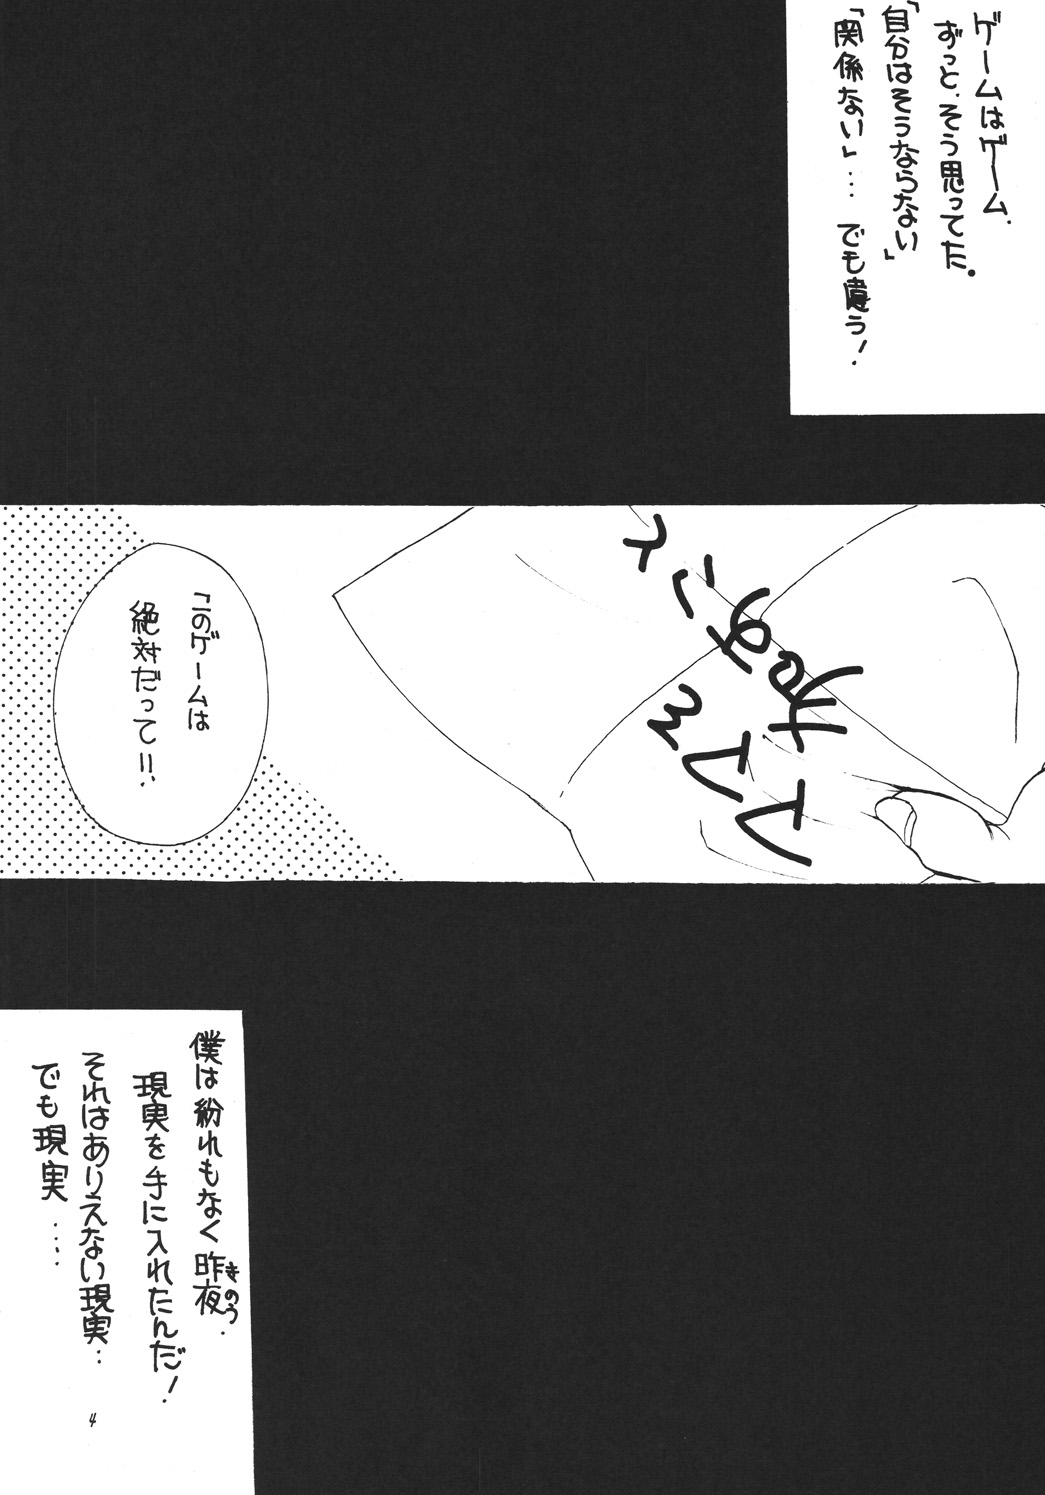 ゲームはゲーム.
ずっと.そう思ってた。
「自分はそうならない」
「関係ない」… でも違う！
「このゲームは
絶対だって!!.
僕は紛れもなく昨夜.
きのう
現実を手に入れたんだ！
それはありえない現実…
でも現実……
4